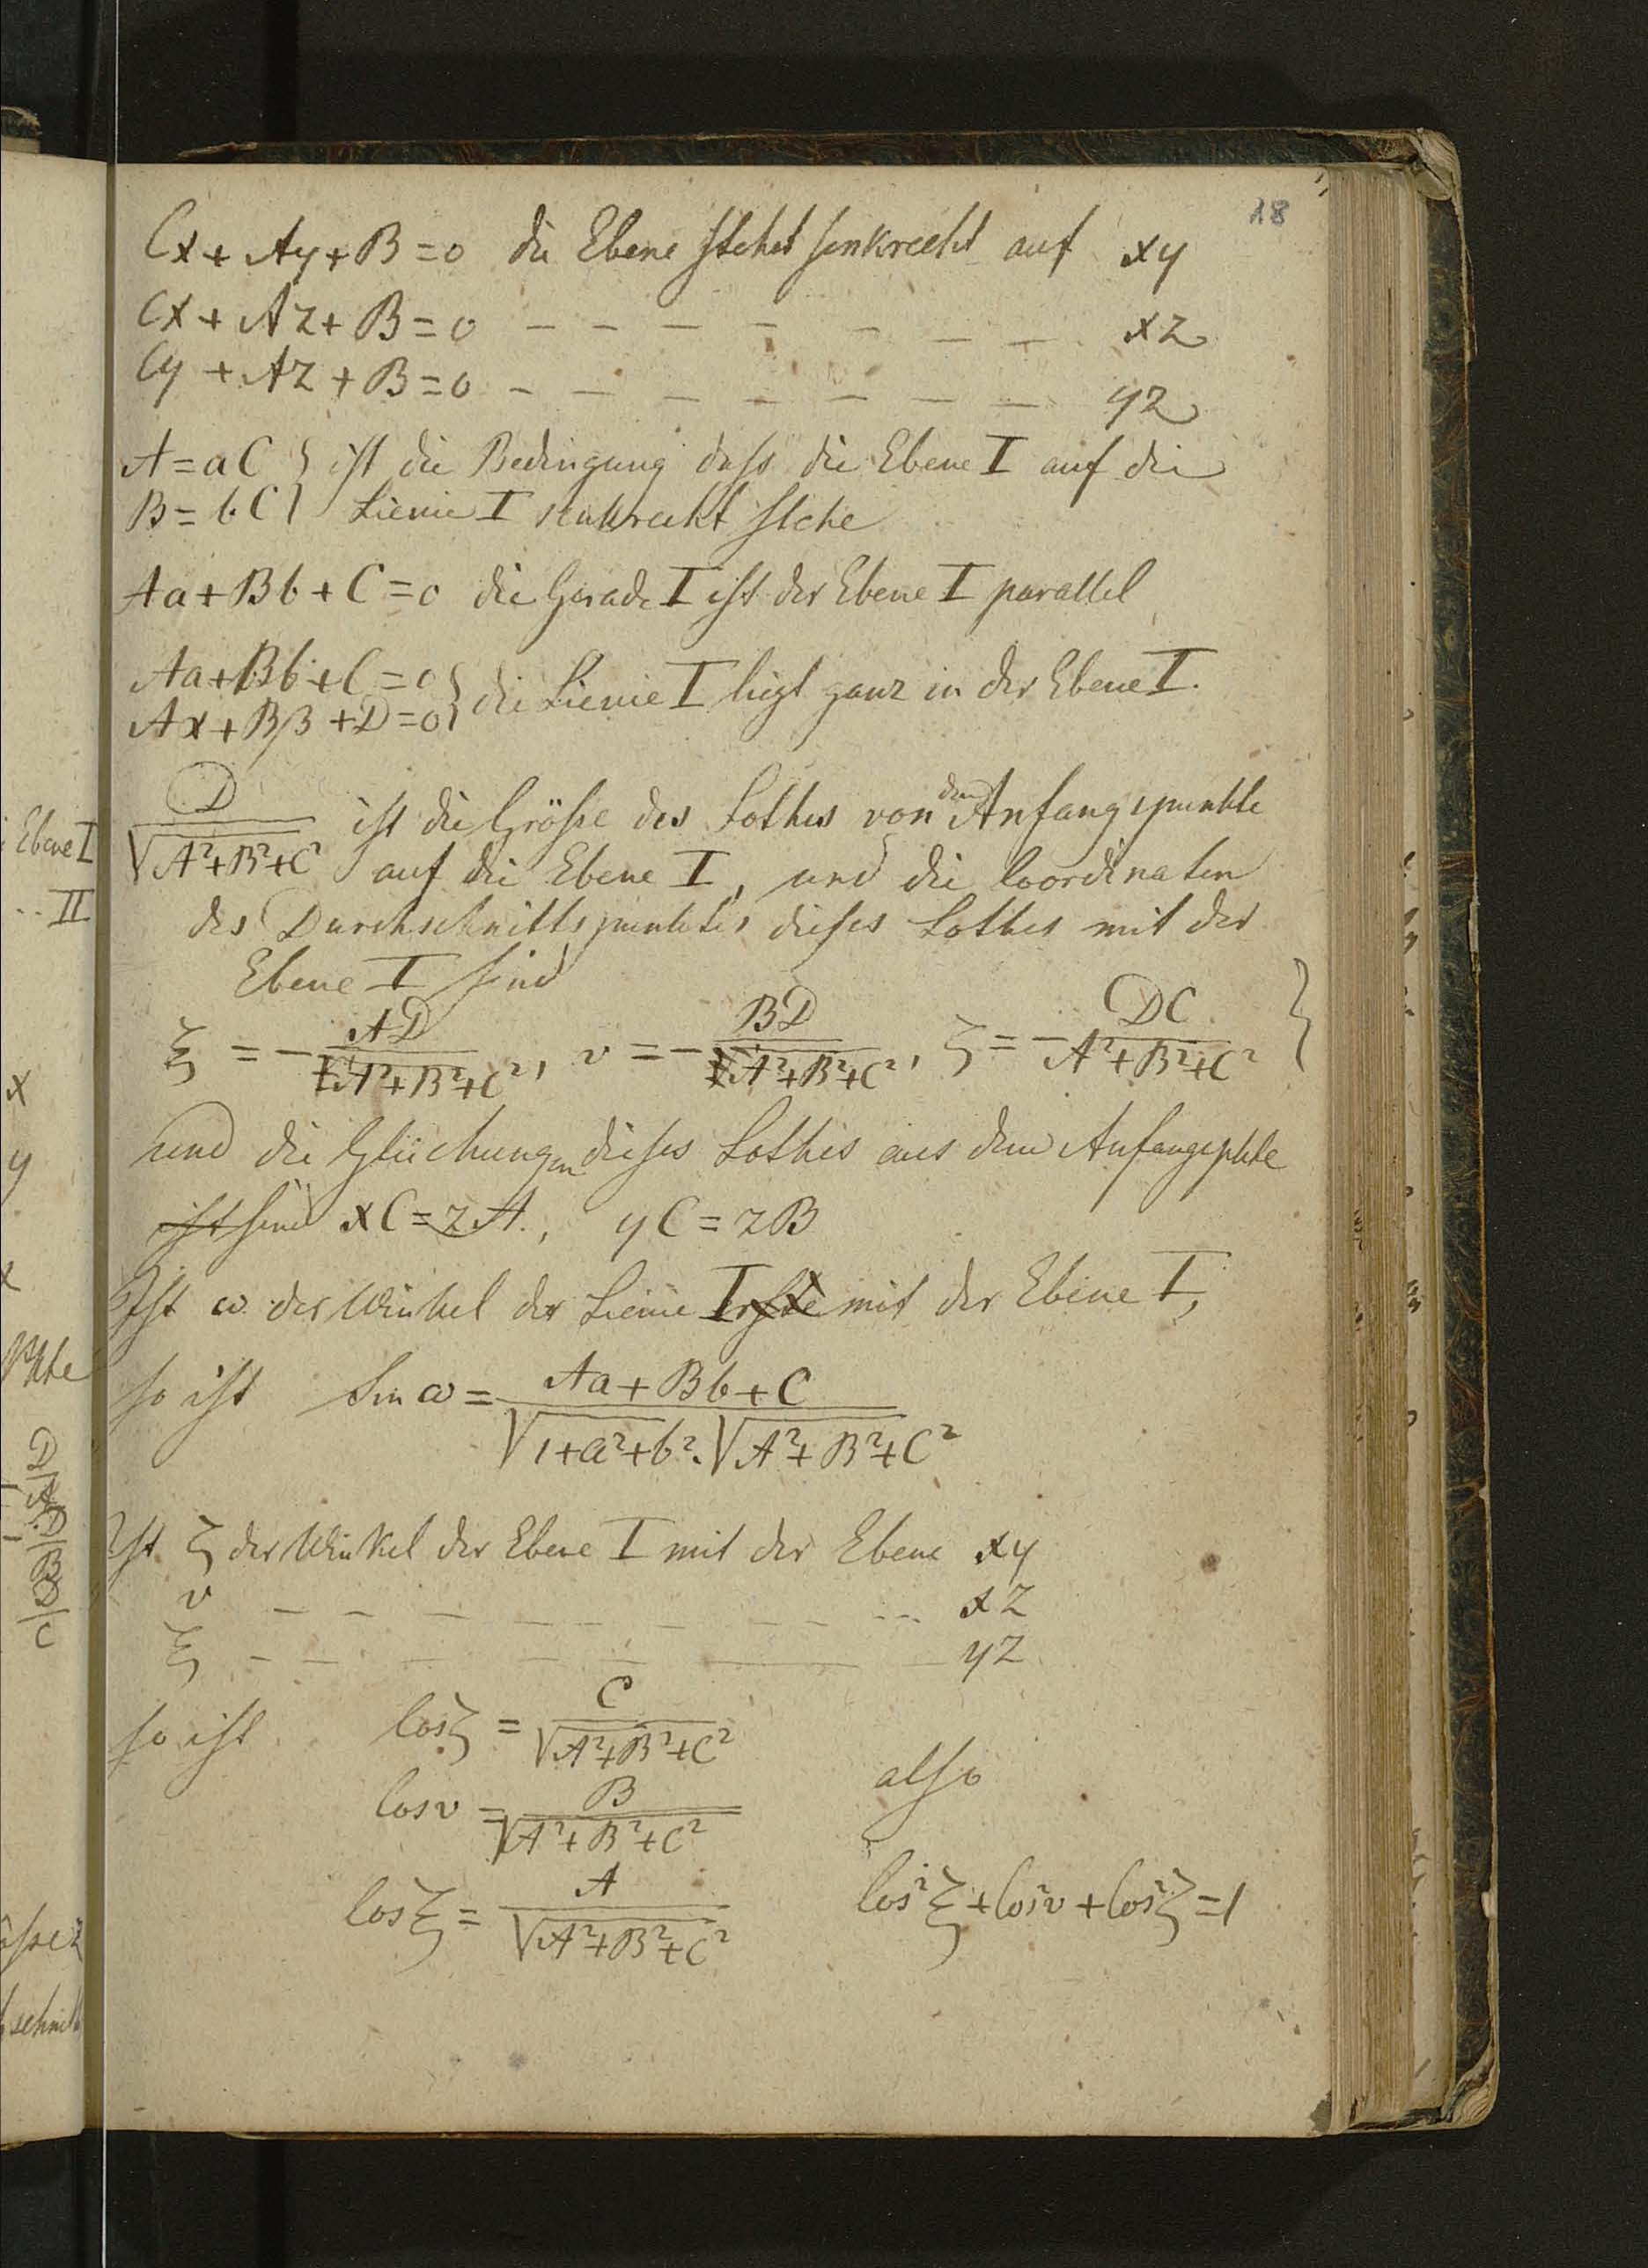 18
Cx + Ay + B = 0 die Ebene stehet senkrecht auf xy
Cx + Az + B = 0 – – – – – – – xz
Cy + Az + B = 0 – – – – – – – yz
A = aC } ist die Bedingung dass die Ebene I auf die
B = bC } Lienie I senkrecht stehe
Aa + Bb + C = 0 die Gerade I ist der Ebene I parallel
Aa + Bb + C = 0 } die Lienie I liegt ganz in der Ebene I.
Aα + Bβ + D = 0 }
D / √(A² + B² + C²) ist die Grösse des Lothes von dem Anfangspunkte
auf die Ebene I, und die Coordinaten
des Durchschnittspunktes dieses Lothes mit der
Ebene I sind
ξ = − AD / A² + B² + C², υ = − BD / A² + B² + C², ζ = − DC / A² + B² + C² }
und die Gleichungen dieses Lothes aus dem Anfangspkte
ist sind xC = zA., yC = zB
Ist ω der Winkel der Lienie I erste mit der Ebene I,
so ist Sin ω = Aa + Bb + C / √(1 + a² + b²) . √(A² + B² + C²)
Ist ζ der Winkel der Ebene I mit der Ebene xy
υ – – – – – – – – – xz
ξ – – – – – – – – yz
so ist Cos ζ = C / √(A² + B² + C²)
also
Cos υ = B / √(A² + B² + C²)
Cos ξ = A / √(A² + B² + C²) Cos² ξ + Cos² υ + Cos² ζ = 1
Ebene I
.. II
x
y
Pkte
D/A
D/B
D/C